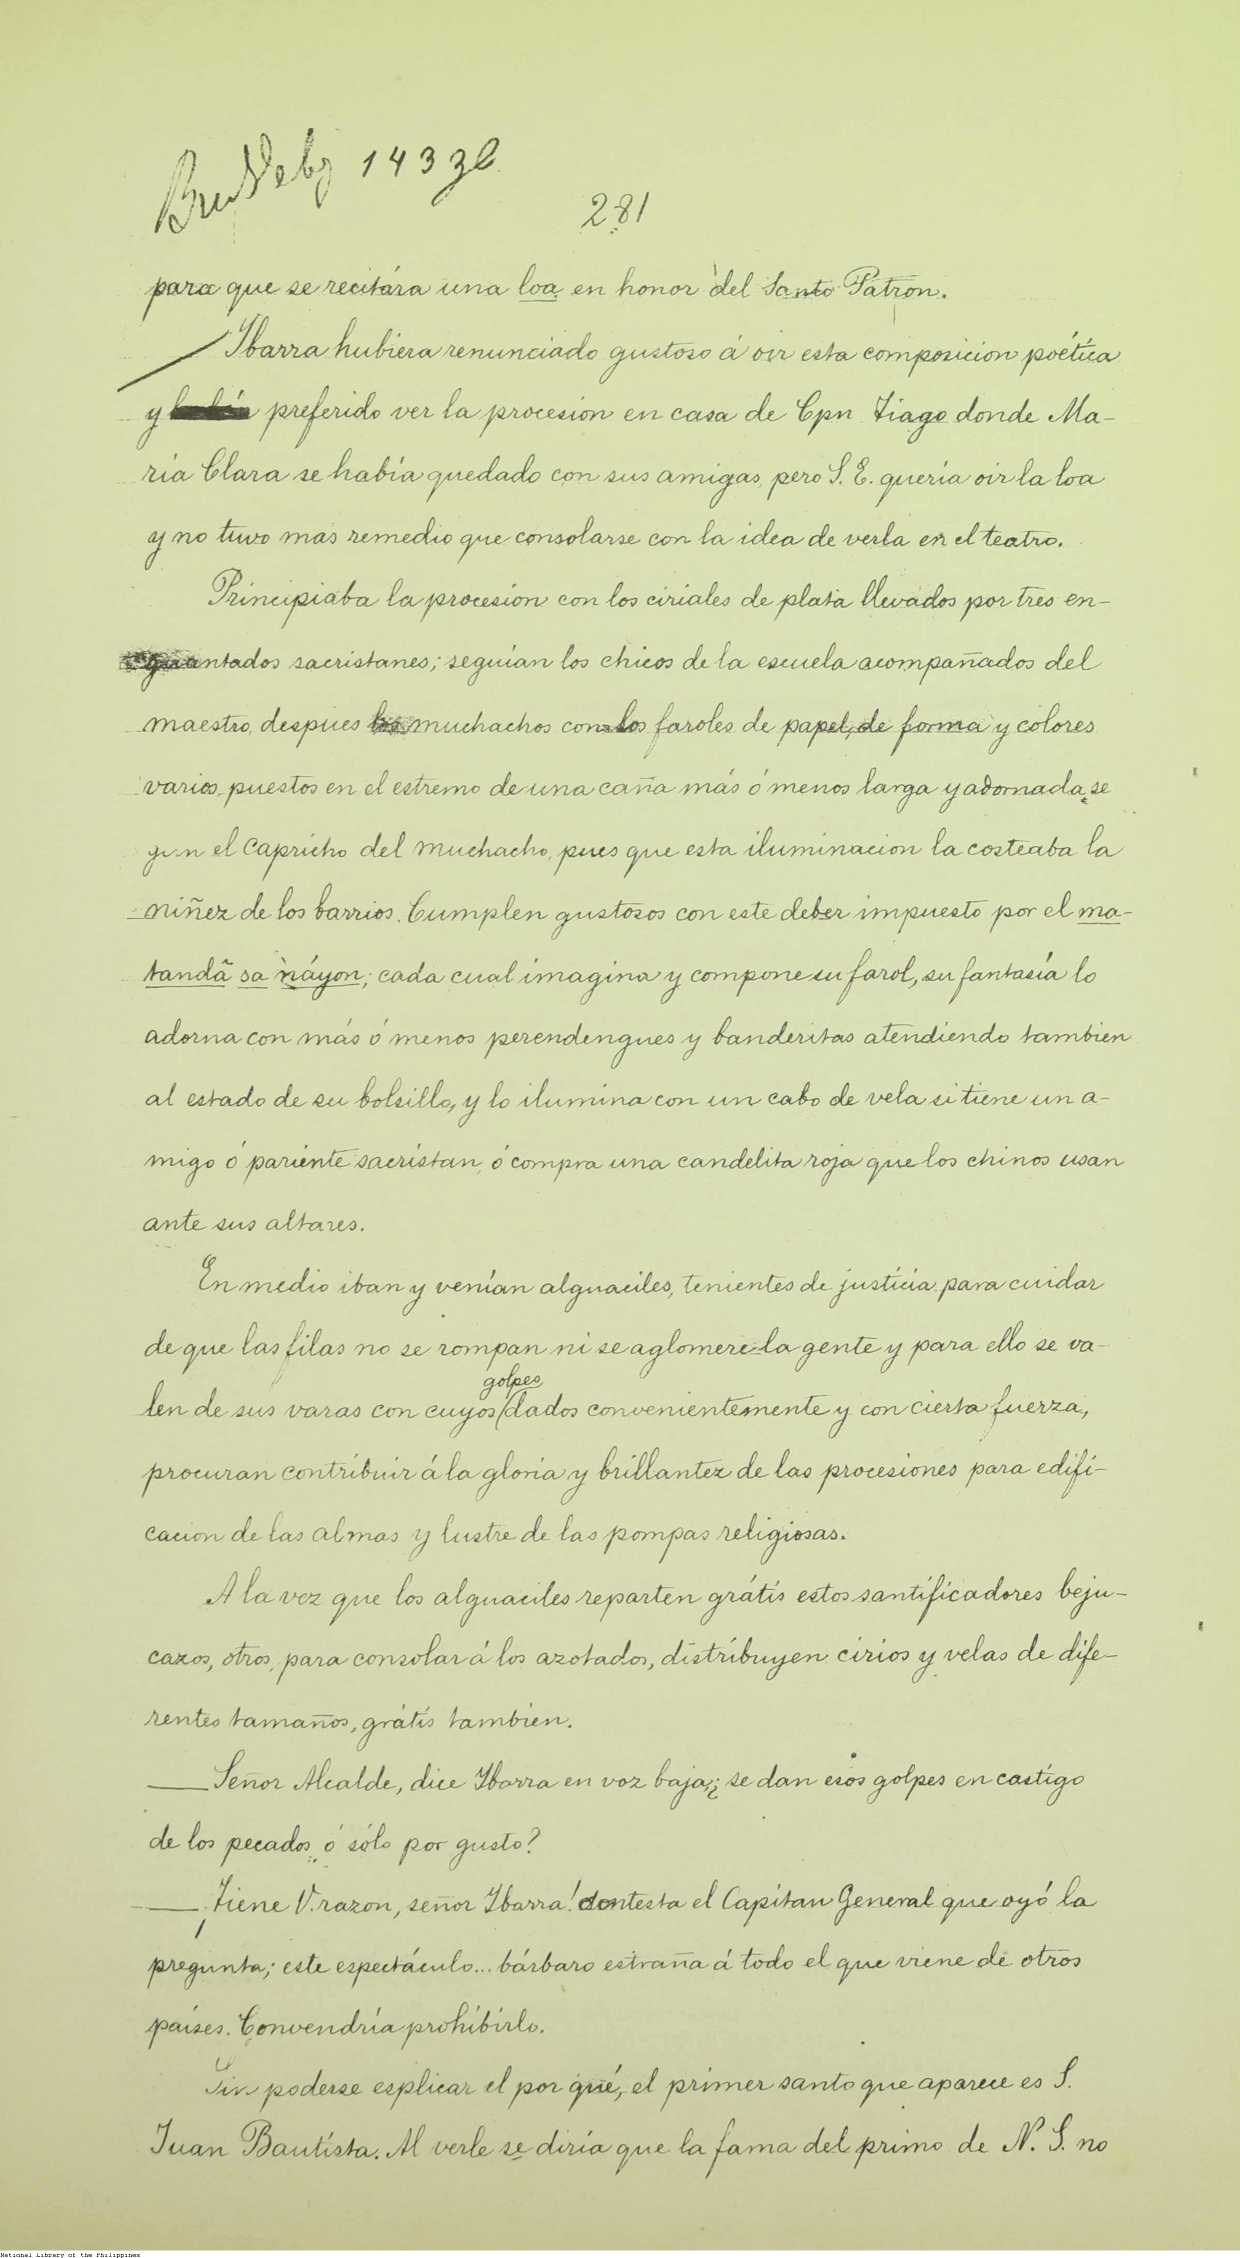 14330
281
para que se recitára una loa en honor del Santo Patron.
Ibarra hubiera renunciado gustoso á oir esta composicion poética
y preferido ver la procesion en casa de Cpn Tiago donde Ma-
ria Clara se había quedado con sus amigas, pero S. E. quería oir la loa
y no tuvo mas remedio que consolarse con la idea de verla en el teatro.
Principiaba la procesion con los ciriales de plata llevados por tres en-
guantados sacristanes; seguían los chicos de la escuela acompañados del
maestro, despues los muchachos con los faroles de papel, de forma y colores
varios, puestos en el estremo de una caña más ó menos larga y adornada se
gun el capricho del muchacho, pues que esta iluminacion la costeaba la
niñez de los barrios. Cumplen gustosos con este deber impuesto por el ma-
tandâ sa náyon; cada cual imagina y compone su farol, su fantasía lo
adorna con más ó menos perendengues y banderitas atendiendo tambien
al estado de su bolsillo, y lo ilumina con un cabo de vela si tiene un a-
migo ó pariente sacristan, ó compra una candelita roja que los chinos usan
ante sus altares.
En medio iban y venían alguaciles, tenientes de justicia para cuidar
de que las filas no se rompan ni se aglomere la gente y para ello se va-
golpes
len de sus varas con cuyos dados convenientemente y con cierta fuerza,
procuran contribuir á la gloria y brillantez de las procesiones para edifi-
cacion de las almas y lustre de las pompas religiosas.
A la vez que los alguaciles reparten grátis estos santificadores beju-
cazos, otros, para consolar á los azotados, distribuyen cirios y velas de dife-
rentes tamaños, grátis tambien.
—Señor Alcalde, dice Ibarra en voz baja; ¿se dan esos golpes en castigo
de los pecados, ó sólo por gusto?
—¡Tiene V. razon, señor Ibarra! contesta el Capitan General que oyó la
pregunta; este espectáculo... bárbaro estraña á todo el que viene de otros
países. Convendría prohibirlo.
Sin poderse esplicar el por qué, el primer santo que aparece es S.
Juan Bautista. Al verle se diría que la fama del primo de N. S. no
National Library of the Philippines